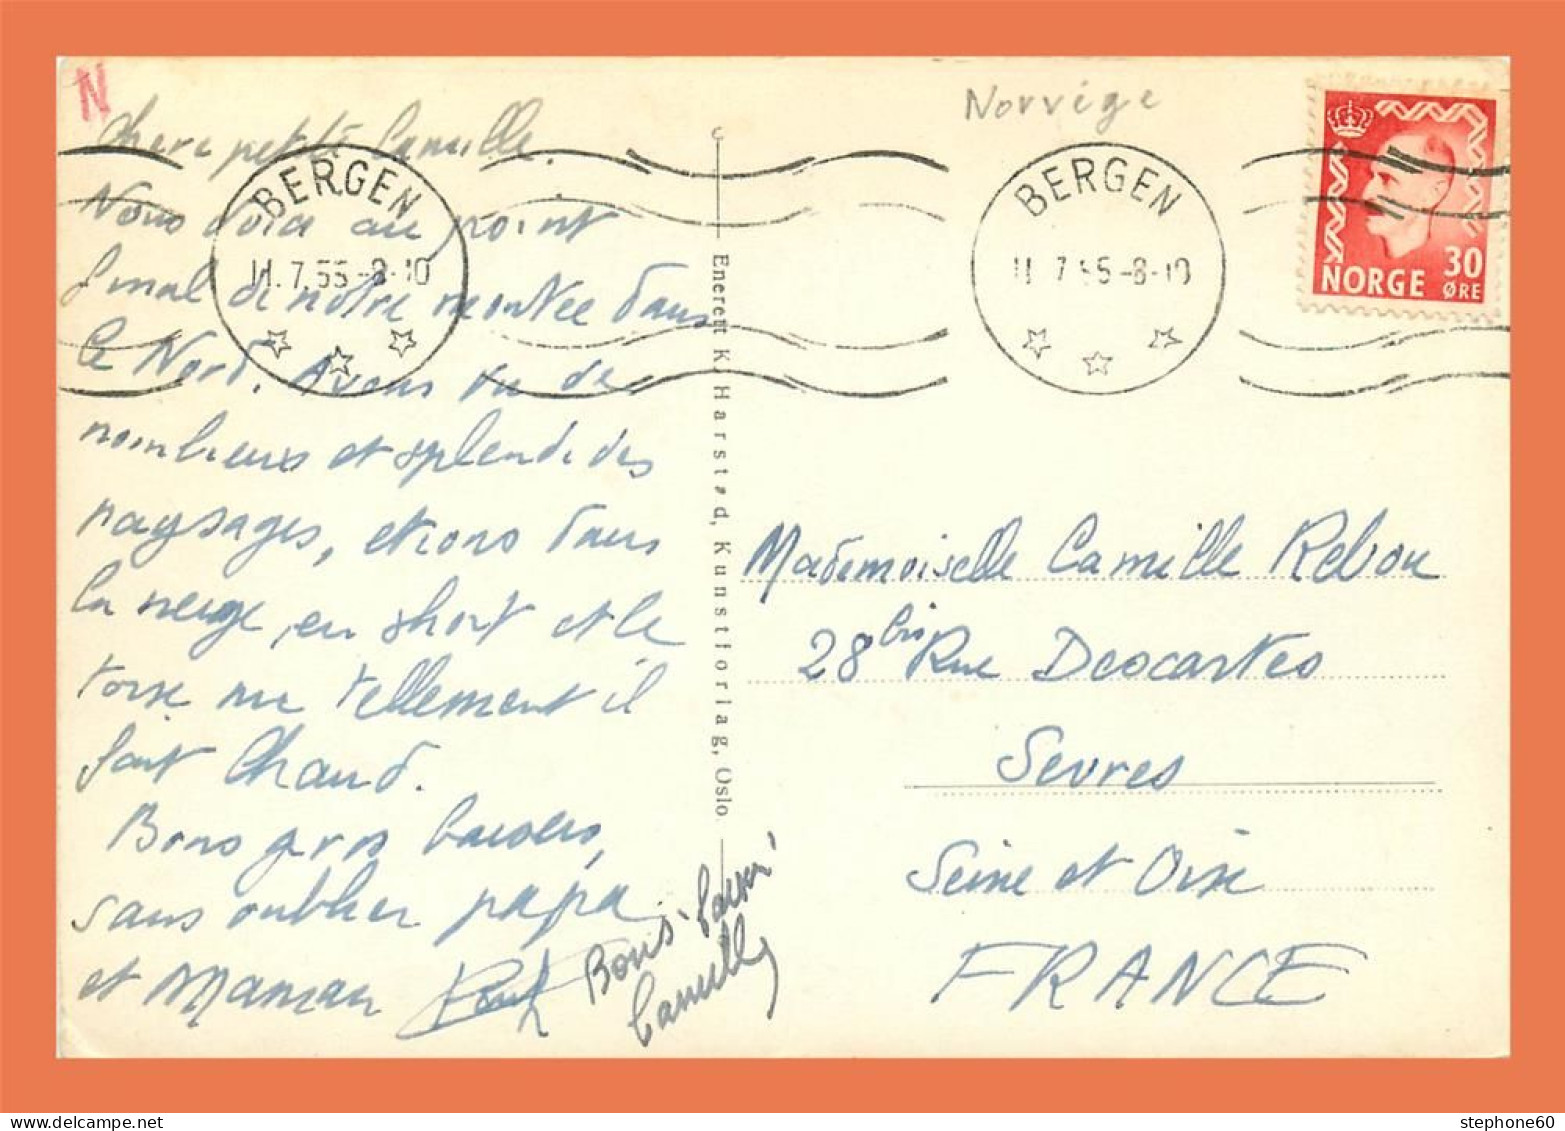 N
Norvége
Chere petite Camille.
Nous voici au point
final de notre montée dans
le Nord. Avons vu de
nombreux et splendides
paysages, etions dans
la neige, en short et le
torse nu tellement il
fait chaud.
Bons gros baisers,
sans oublier papa
et Maman
Bons baisers
Camille
BERGEN
11.7.55-8-10
BERGEN
11.7.55-8-10
NORGE 30
ØRE
Enerett K. Harstød, Kunstforlag, Oslo
Mademoiselle Camille Rebou
28 bis Rue Descartes
Sevres
Seine et Oise
FRANCE
stephone60